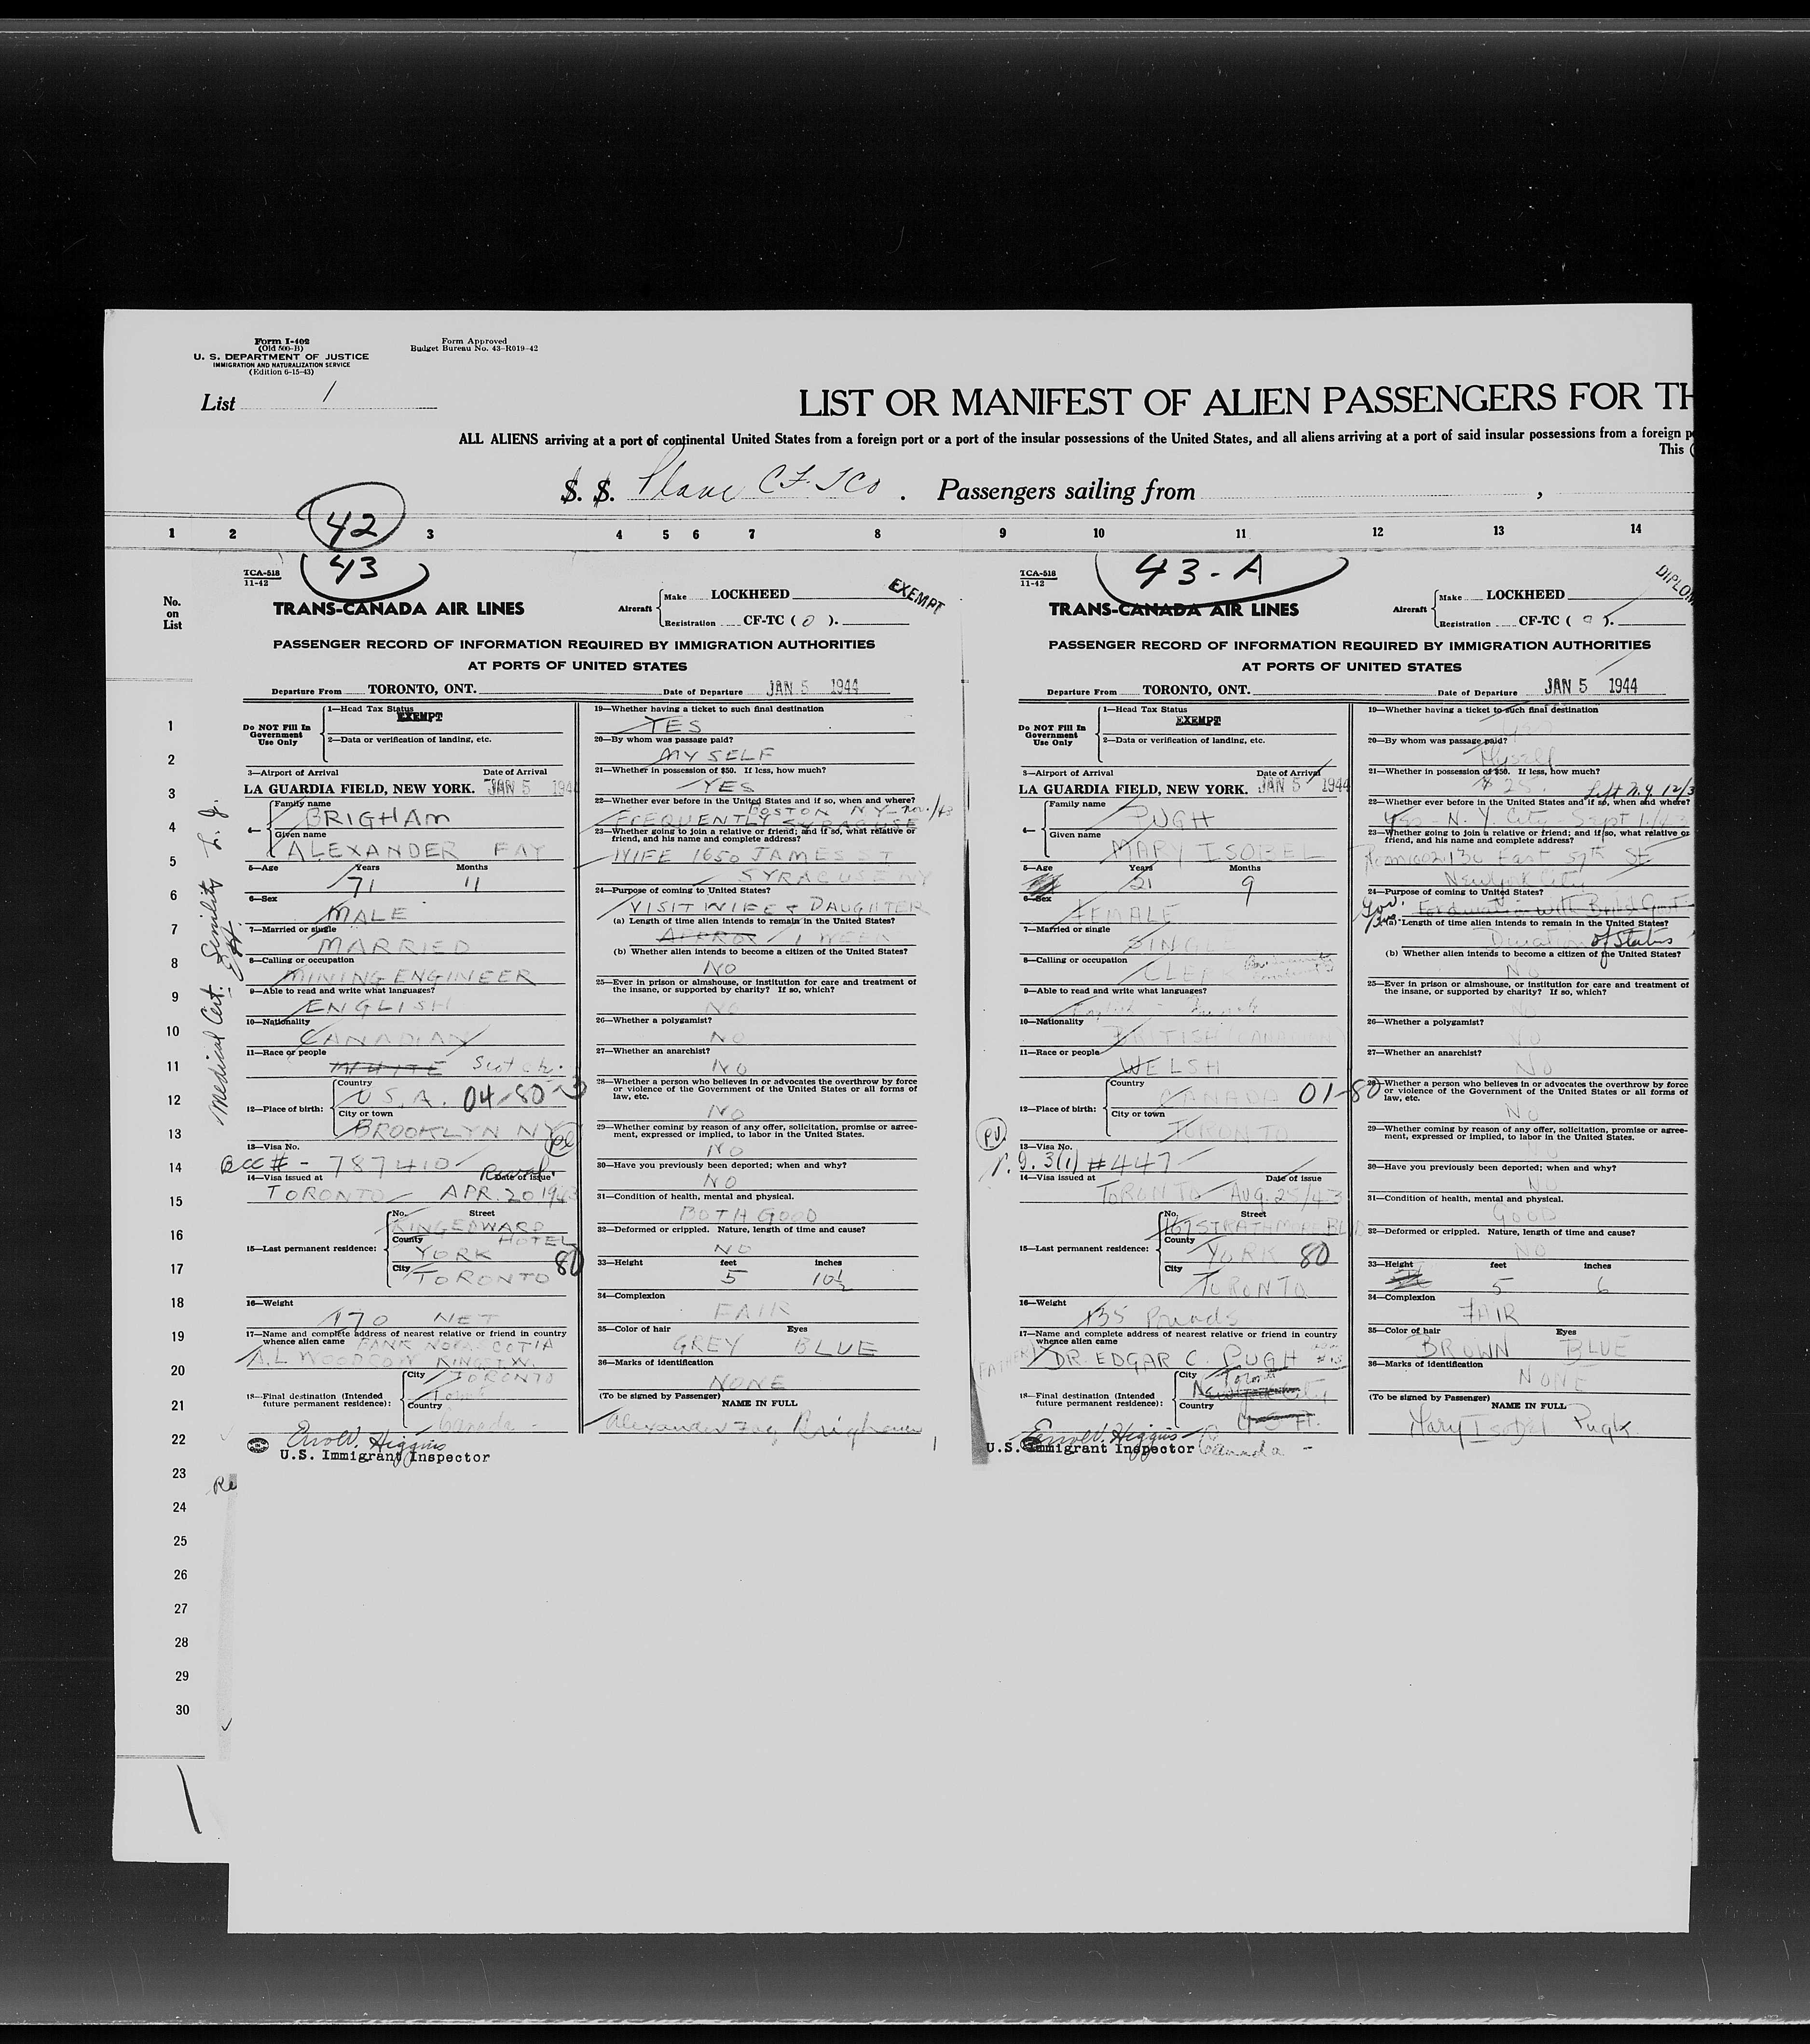 Form I-402
(Old 566-B)
U. S. DEPARTMENT OF JUSTICE
IMMIGRATION AND NATURALIZATION SERVICE
(Edition 6-15-43)
Form Approved
Budget Bureau No. 43-R019-42
List 1
LIST OR MANIFEST OF ALIEN PASSENGERS FOR TH
ALL ALIENS arriving at a port of continental United States from a foreign port or a port of the insular possessions of the United States, and all aliens arriving at a port of said insular possessions from a foreign p
This (
S. S. Plane CF-TCO . Passengers sailing from ,
1 2 3 4 5 6 7 8 9 10 11 12 13 14
42
No.
on
List
1
2
3
4
5
6
7
8
9
10
11
12
13
14
15
16
17
18
19
20
21
22
23
24
25
26
27
28
29
30
Medical Cert.
43
TCA-518
11-42
TRANS-CANADA AIR LINES
Aircraft
Make LOCKHEED
Registration CF-TC ( O ).
EXEMPT
PASSENGER RECORD OF INFORMATION REQUIRED BY IMMIGRATION AUTHORITIES
AT PORTS OF UNITED STATES
Departure From TORONTO, ONT. Date of Departure JAN 5 1944
Do NOT Fill In
Government
Use Only
1—Head Tax Status
EXEMPT
2—Data or verification of landing, etc.
3—Airport of Arrival Date of Arrival
LA GUARDIA FIELD, NEW YORK. JAN 5 194
4—
Family name
BRIGHAM
Given name
ALEXANDER FAY
5—Age Years Months
71 11
6—Sex
MALE
7—Married or single
MARRIED
8—Calling or occupation
MINING ENGINEER
9—Able to read and write what languages?
ENGLISH
10—Nationality
CANADIAN
11—Race or people
WHITE Scotch.
12—Place of birth:
Country
U.S.A. 04-80-3
City or town
BROOKLYN NY
13—Visa No.
BCC # - 787410
14—Visa issued at Date of issue
TORONTO APR. 20 1943
15—Last permanent residence:
No. Street
KING EDWARD
HOTEL
County
YORK 80
City
TORONTO
16—Weight
170 NET
17—Name and complete address of nearest relative or friend in country
whence alien came BANK NOVA SCOTIA
A.L WOODROW KING ST. W.
TORONTO
18—Final destination (Intended
future permanent residence):
City
Country
Canada
Errol V. Higgins
U.S. Immigrant Inspector
19—Whether having a ticket to such final destination
YES
20—By whom was passage paid?
MY SELF
21—Whether in possession of $50. If less, how much?
YES
22—Whether ever before in the United States and if so, when and where?
BOSTON NY- Nov./43
FREQUENTLY SYRACUSE
23—Whether going to join a relative or friend; and if so, what relative or
friend, and his name and complete address?
WIFE 1650 JAMES ST
SYRACUSE NY
24—Purpose of coming to United States?
VISIT WIFE & DAUGHTER
(a) Length of time alien intends to remain in the United States?
APPROX 1 WEEK
(b) Whether alien intends to become a citizen of the United States?
NO
25—Ever in prison or almshouse, or institution for care and treatment of
the insane, or supported by charity? If so, which?
NO
26—Whether a polygamist?
NO
27—Whether an anarchist?
NO
28—Whether a person who believes in or advocates the overthrow by force
or violence of the Government of the United States or all forms of
law, etc.
NO
29—Whether coming by reason of any offer, solicitation, promise or agree-
ment, expressed or implied, to labor in the United States.
NO
30—Have you previously been deported; when and why?
NO
31—Condition of health, mental and physical.
BOTH GOOD
32—Deformed or crippled. Nature, length of time and cause?
NO
33—Height feet inches
5 10½
34—Complexion
FAIR
35—Color of hair Eyes
GREY BLUE
36—Marks of identification
NONE
(To be signed by Passenger) NAME IN FULL
Alexander Fay Brigham
43-A
TCA-518
11-42
TRANS-CANADA AIR LINES
Aircraft
Make LOCKHEED
Registration CF-TC ( O ).
DIPLOM
PASSENGER RECORD OF INFORMATION REQUIRED BY IMMIGRATION AUTHORITIES
AT PORTS OF UNITED STATES
Departure From TORONTO, ONT. Date of Departure JAN 5 1944
Do NOT Fill In
Government
Use Only
1—Head Tax Status
EXEMPT
2—Data or verification of landing, etc.
3—Airport of Arrival Date of Arrival
LA GUARDIA FIELD, NEW YORK. JAN 5 1944
4—
Family name
PUGH
Given name
MARY ISOBEL
5—Age Years Months
21 9
6—Sex
FEMALE
7—Married or single
SINGLE
8—Calling or occupation
9—Able to read and write what languages?
English French
10—Nationality
BRITISH (CANADIAN)
11—Race or people
WELSH
12—Place of birth:
Country
CANADA 01-80
City or town
TORONTO
PV.
13—Visa No.
P.V. 3(1) #447
14—Visa issued at Date of issue
TORONTO AUG. 25/43
15—Last permanent residence:
No. Street
167 STRATHMORE BLVD
County
YORK 80
City
TORONTO
16—Weight
135 Pounds
17—Name and complete address of nearest relative or friend in country
whence alien came
(FATHER) DR. EDGAR C. PUGH
18—Final destination (Intended
future permanent residence):
City
Toronto
New York City
Country
U.S.A.
Errol V. Higgins
U.S. Immigrant Inspector Canada
19—Whether having a ticket to such final destination
20—By whom was passage paid?
Myself
21—Whether in possession of $50. If less, how much?
$25. Left N.Y. 12/3
22—Whether ever before in the United States and if so, when and where?
Yes - N. Y. City - Sept 1.
23—Whether going to join a relative or friend; and if so, what relative or
friend, and his name and complete address?
Room 1002 130 East 57th St
New York City
24—Purpose of coming to United States?
Gov. Bus.
(a) Length of time alien intends to remain in the United States?
Duration of Status
(b) Whether alien intends to become a citizen of the United States?
NO
25—Ever in prison or almshouse, or institution for care and treatment of
the insane, or supported by charity? If so, which?
NO
26—Whether a polygamist?
NO
27—Whether an anarchist?
NO
28—Whether a person who believes in or advocates the overthrow by force
or violence of the Government of the United States or all forms of
law, etc.
NO
29—Whether coming by reason of any offer, solicitation, promise or agree-
ment, expressed or implied, to labor in the United States.
NO
30—Have you previously been deported; when and why?
NO
31—Condition of health, mental and physical.
GOOD
32—Deformed or crippled. Nature, length of time and cause?
NO
33—Height feet inches
5 6
34—Complexion
FAIR
35—Color of hair Eyes
BROWN BLUE
36—Marks of identification
NONE
(To be signed by Passenger) NAME IN FULL
Mary Isobel Pugh